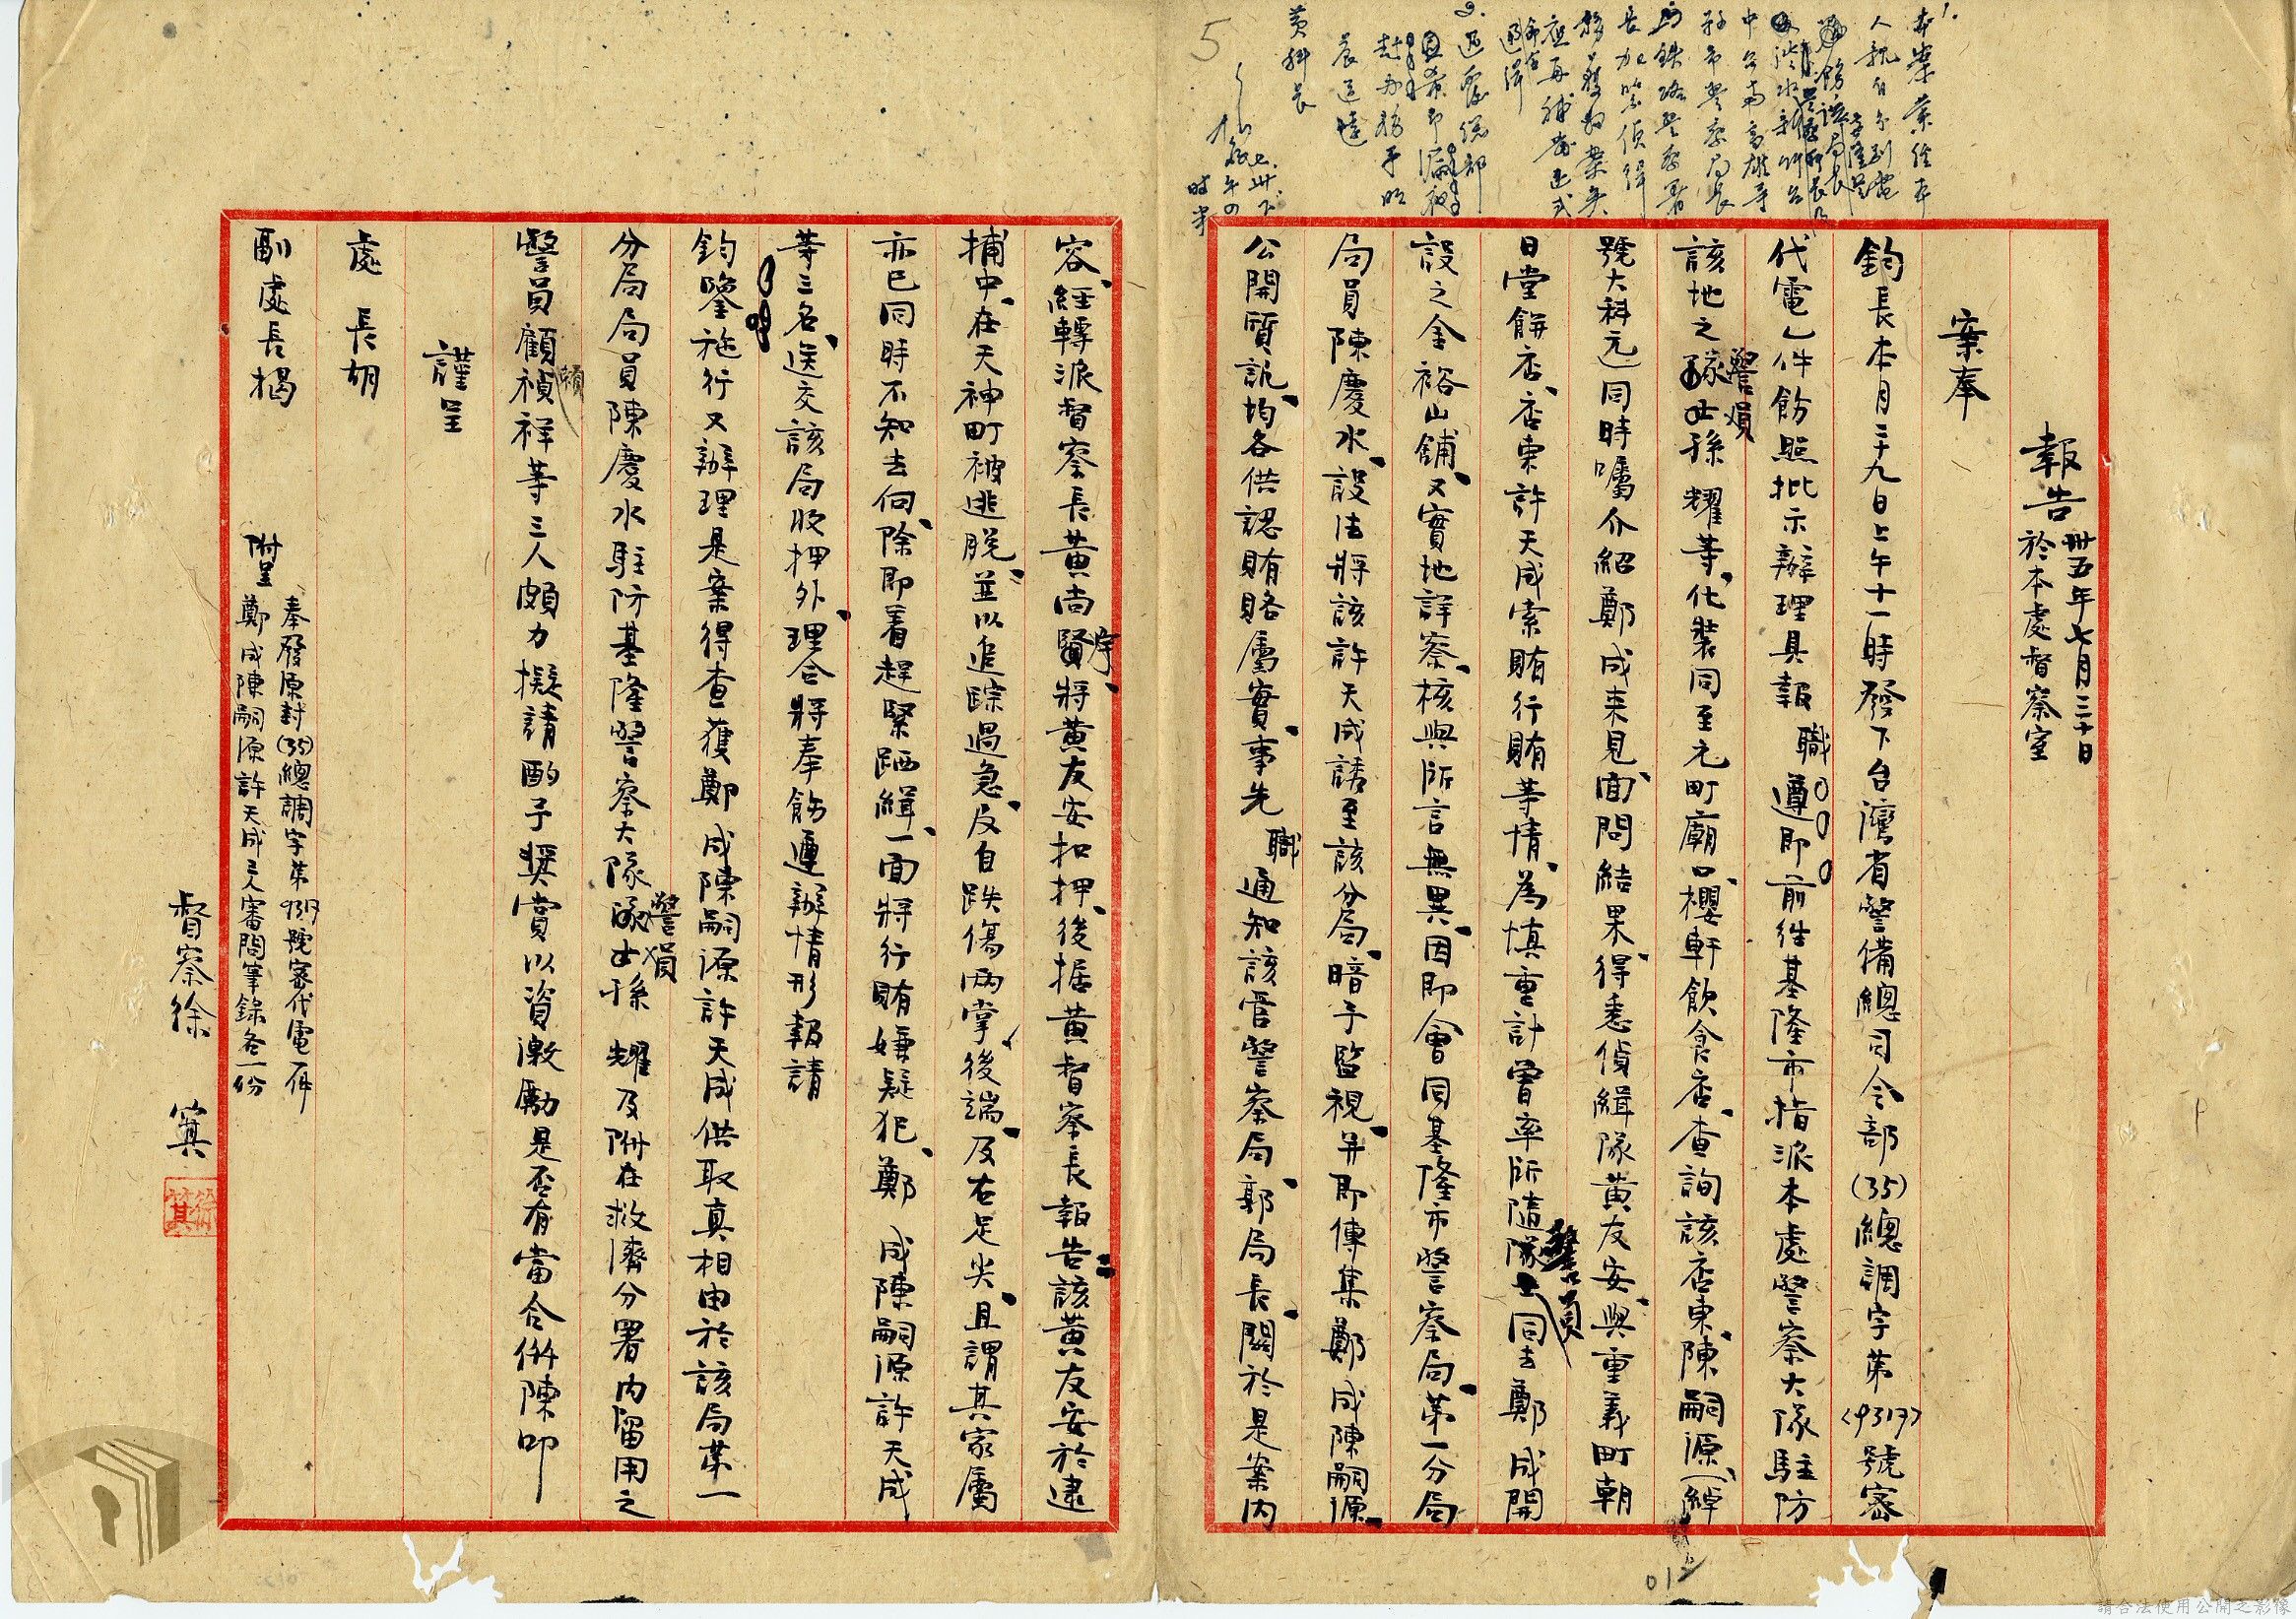 報告 卅五年七月三十日
於本處督察室
案奉
鈞長本月二十九日上午十一時發下台灣省警備總司令部(35)總調字第(9317)號密
代電乙件飭照批示辦理具報 職遵即前往基隆市指派本處警察大隊駐防
該地之警員孫 耀等、化裝同至元町廟口櫻軒飲食店、查詢該店東、陳嗣源、(綽
號大科元)同時囑介紹鄭 成来見、面問結果、得悉偵緝隊黄友安、與重義町朝
日堂餅店、店東許天成索賄行賄等情、為慎重計曾率所隨警員同去鄭 成開
設之金裕山舖、又實地詳察、核與所言無異、因即會同基隆市警察局、第一分局
局員陳慶水、設法將該許天成誘至該分局、暗予監視、并即傳集鄭 成陳嗣源、
公開質訊、均各供認賄賂屬實、事先 職通知該管警察局、郭局長、關於是案内
容、経轉派督察長黄尚賓、將黄友安扣押、後据黄督察長報告該黄友安於逮
捕中、在天神町被逃脱、並以追踪過急、反自跌傷兩掌、後端、及右足尖、且謂其家屬
亦已同時不知去向、除即着趕緊跴緝、一面將行賄嫌疑犯、鄭 成陳嗣源許天成
等三名、送交該局收押外、理合將奉飭遵辦情形報請
鈞鑒施行又辦理是案得查獲鄭 成陳嗣源許天成供取真相由於該局第一
分局局員陳慶水駐防基隆警察大隊警員孫 耀及附在救濟分署内留用之
警員顧禎祥等三人頗力擬請酌予奨賞以資激勵是否有當合併陳叩
謹呈
處 長胡
副處長楊
附呈 奉發原封(35)總調字第9317號密代電一件
鄭 成陳嗣源許天成三人審問筆錄各一份
督察徐 箕
徐箕
1. 本案業經本
人親自分別電
中台南高雄等
縣市警察局長
鐵路警察署
長加紧偵緝
應再補發正式
通緝
2.
黄科長
5
012
請合法使用公開之影像